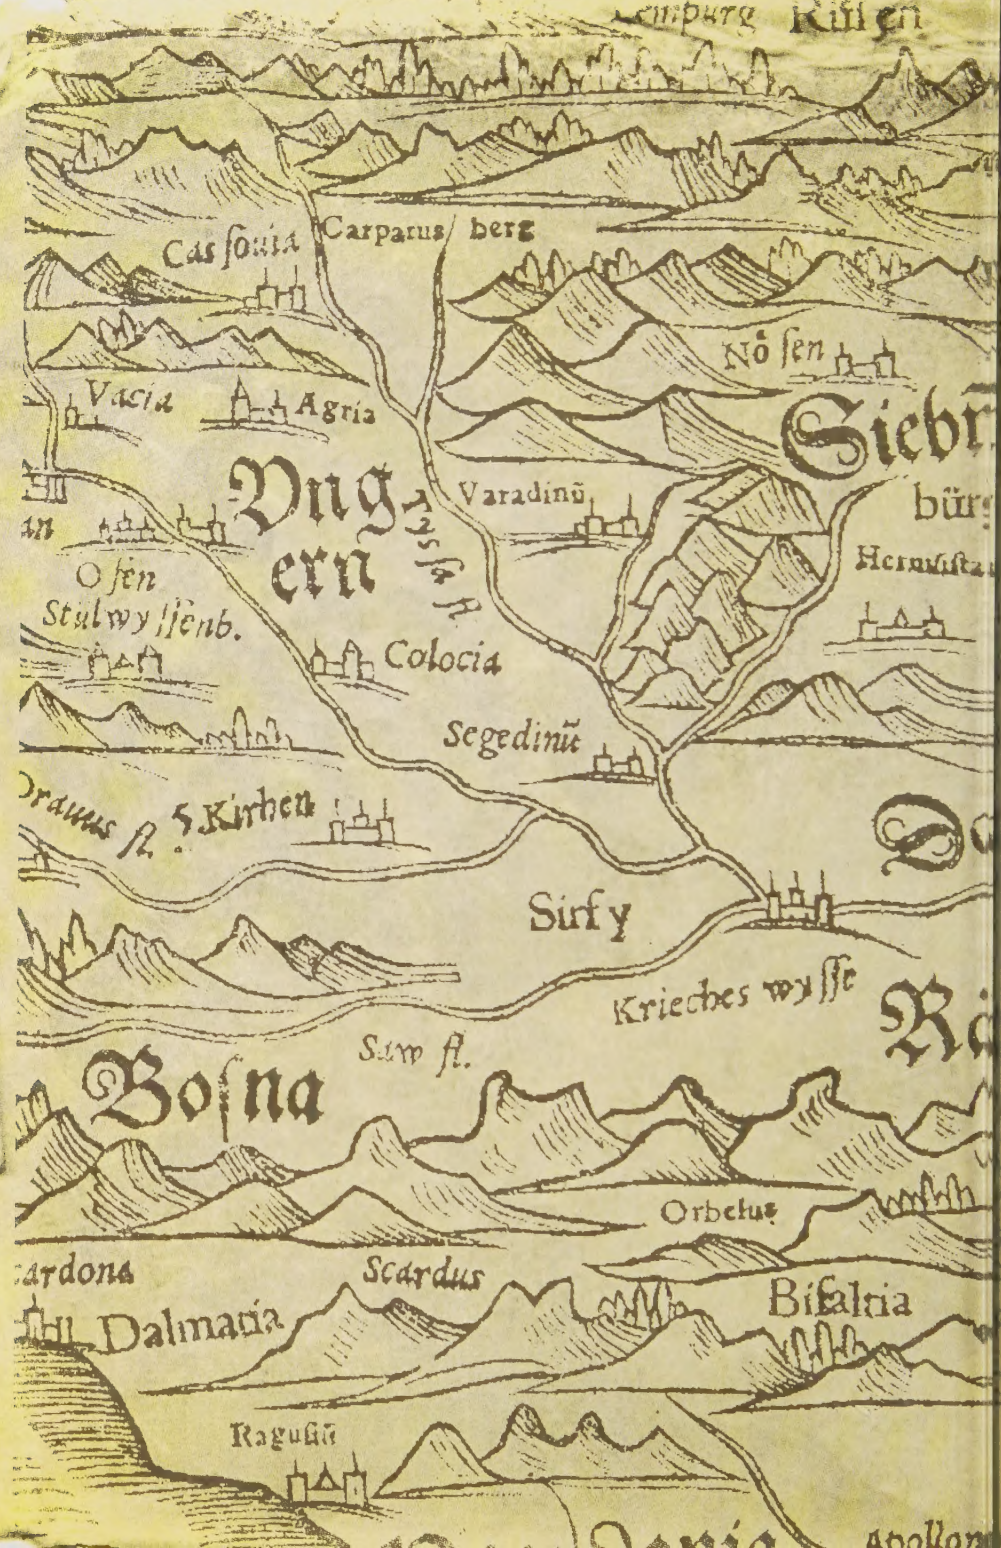 Lempurg Rüssen
Casſouia
Carpatus berg
Nöſen
Vacia
Agria
Siebē
bürg
Vng-
ern
Tissa fl
Varadinū
Ofen
Stulwyſſenb.
Colocia
Segedinū
Drauus fl.
5. Kirhen
Sirfy
Krieches wyſſe
Saw fl.
Boſna
Orbelus
Scardus
ardona
Dalmatia
Biſaltia
Raguſiū
Apollon